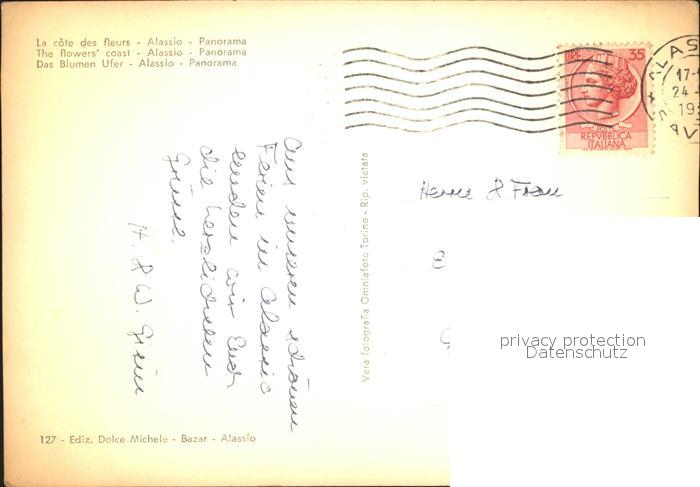 La côte des fleurs - Alassio - Panorama
The flowers' coast - Alassio - Panorama
Das Blumen Ufer - Alassio - Panorama
LIRE 35
REPVBBLICA
ITALIANA
ALAS
17-
24
19
AV
Aus unseren schönen
Ferien in Alassio
senden wir Euch
die herzlichsten
Grüsse.
H. & W.
Vera fotografia Omniafoto Torino - Rip. vietata
Herrn & Frau
privacy protection
Datenschutz
127 - Ediz. Dolce Michele - Bazar - Alassio